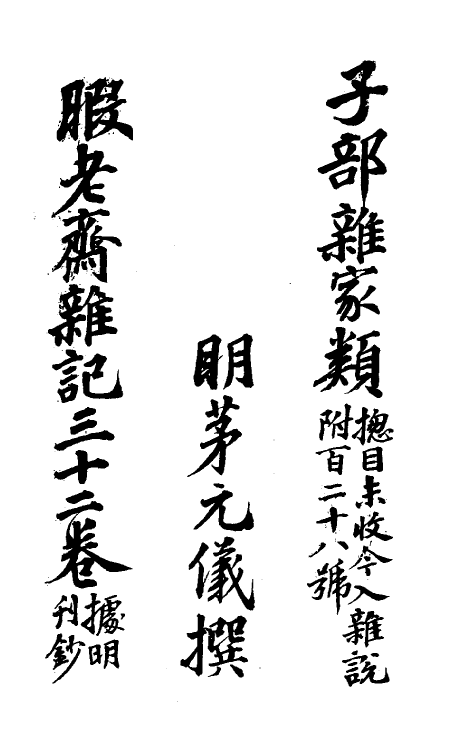 子部雜家類
摠目未收今入雜說
附百二十八號
明茅元儀撰
暇老齋雜記三十二卷
據明
刊鈔